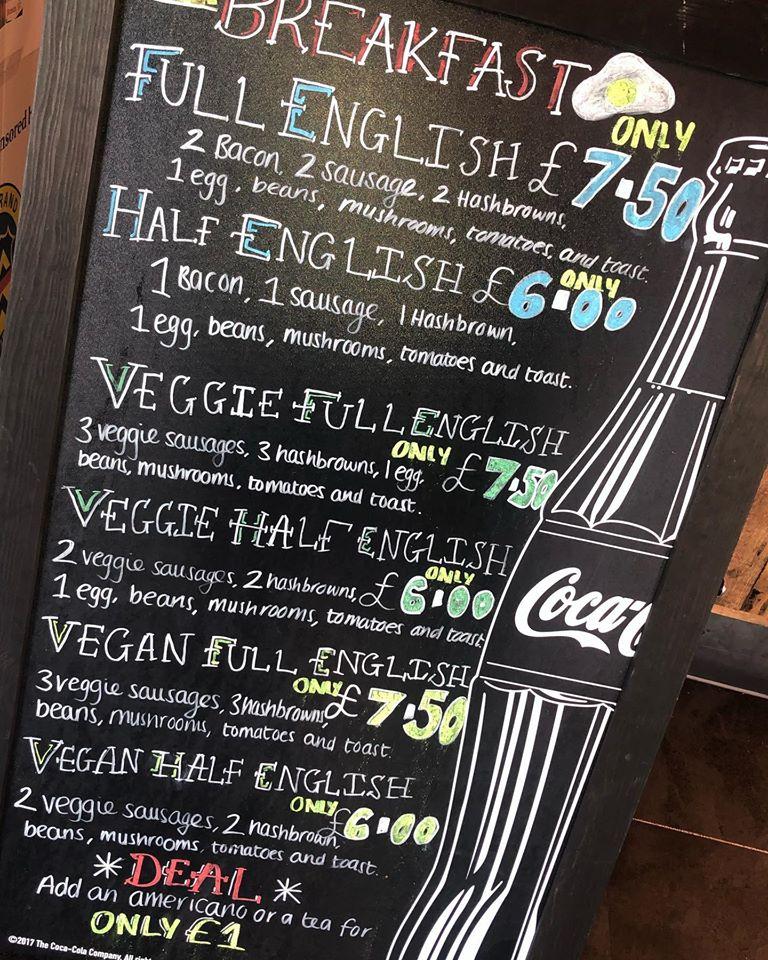 BREAKFAST
FULL ENGLISH ONLY £7.50
2 Bacon, 2 sausage, 2 Hashbrowns,
1 egg, beans, mushrooms, tomatoes, and toast.
HALF ENGLISH ONLY £6.00
1 Bacon, 1 sausage, 1 Hashbrown,
1 egg, beans, mushrooms, tomatoes and toast.
VEGGIE FULL ENGLISH
3 veggie sausages, 3 hashbrowns, 1 egg, ONLY £7.50
beans, mushrooms, tomatoes and toast.
VEGGIE HALF ENGLISH
2 veggie sausages, 2 hashbrowns, ONLY £6.00
1 egg, beans, mushrooms, tomatoes and toast.
VEGAN FULL ENGLISH
3 veggie sausages, 3 hashbrowns, ONLY £7.50
beans, mushrooms, tomatoes and toast.
VEGAN HALF ENGLISH
2 veggie sausages, 2 hashbrown, ONLY £6.00
beans, mushrooms, tomatoes and toast.
* DEAL *
Add an americano or a tea for
ONLY £1
Coca-C
©2017 The Coca-Cola Company. All